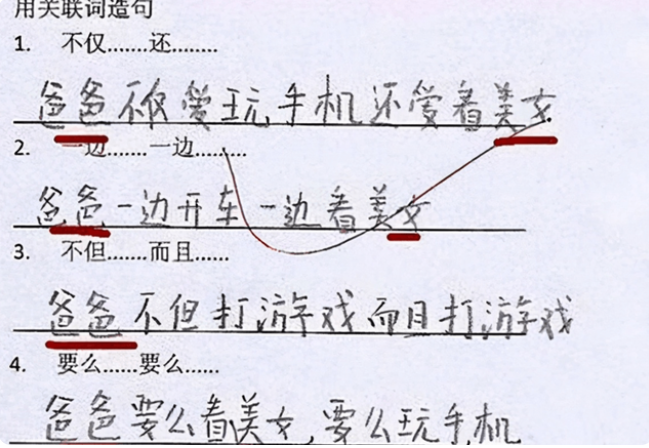 用关联词造句
1. 不仅.......还........
爸爸不仅爱玩手机还爱看美女.
2. 一边.......一边.........
爸爸一边开车一边看美女
3. 不但.......而且......
爸爸不但打游戏而且打游戏
4. 要么......要么......
爸爸要么看美女,要么玩手机